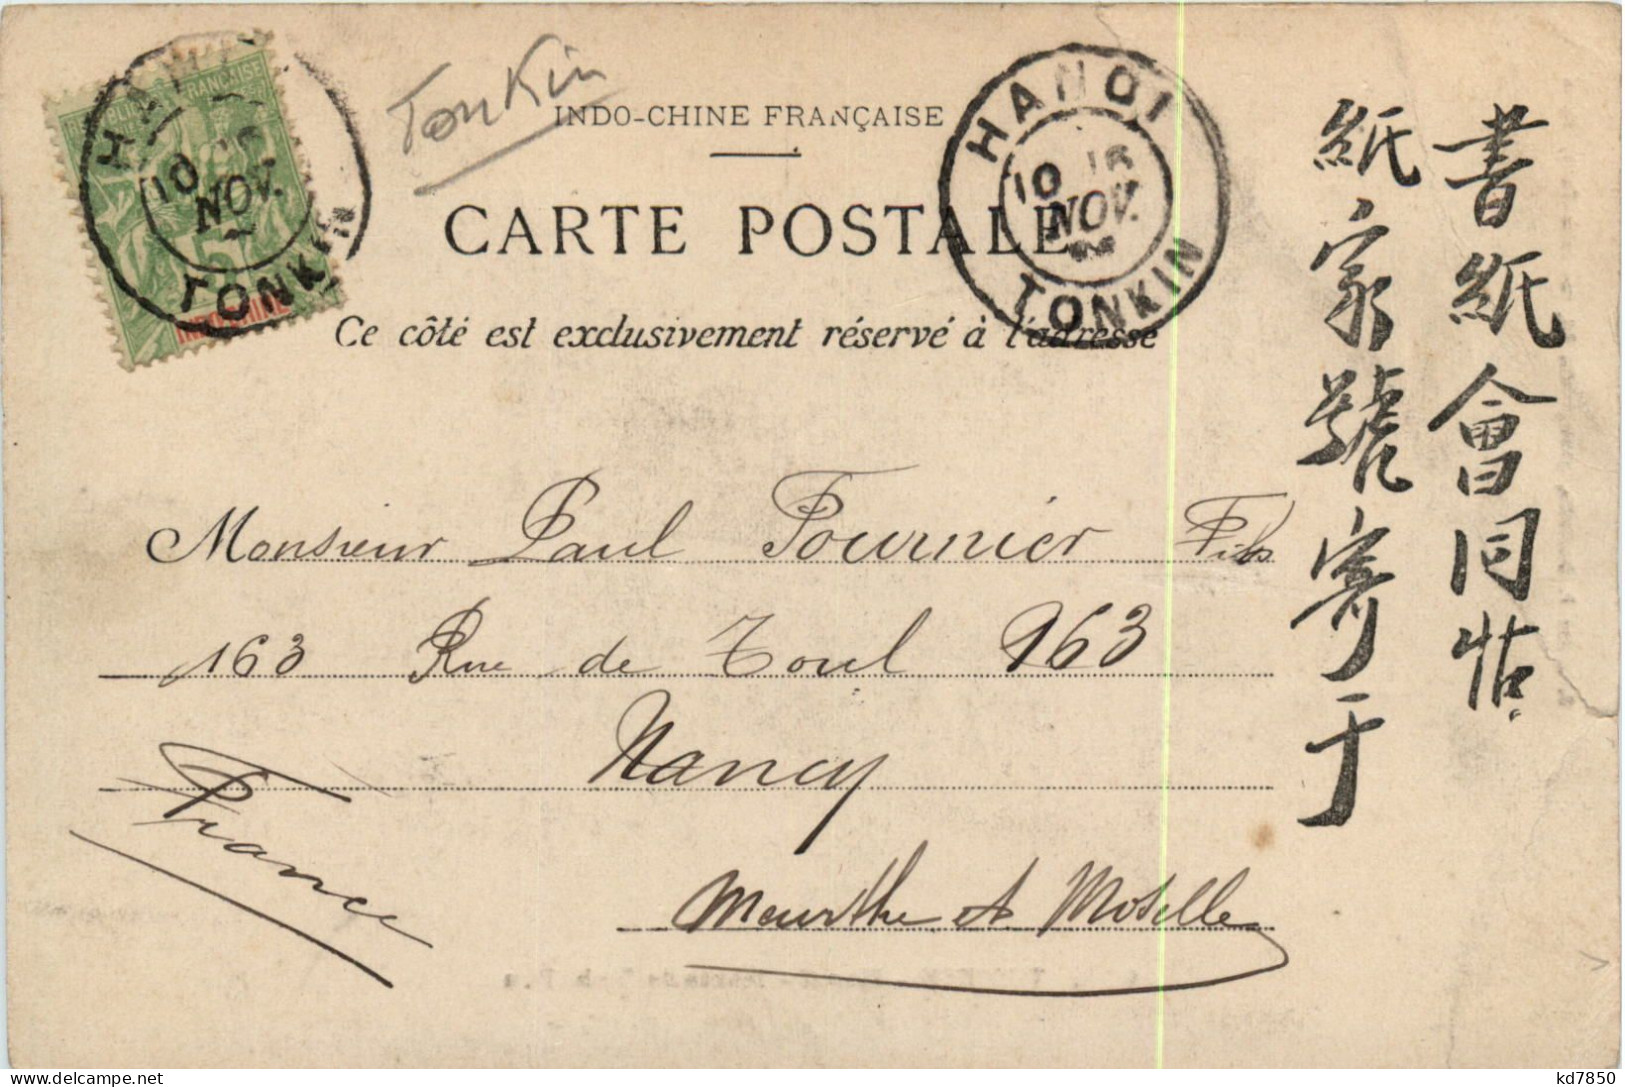 Tonkin
INDO-CHINE FRANÇAISE
CARTE POSTALE
Ce côté est exclusivement réservé à l'adresse
HANOI
10
NOV.
TONKIN
HANOI
10 16
NOV.
TONKIN
書紙會同帖
紙家號寄于
Monsieur Paul Fournier Fils
163 Rue de Toul 163
Nancy
Meurthe et Moselle
France
kd7850